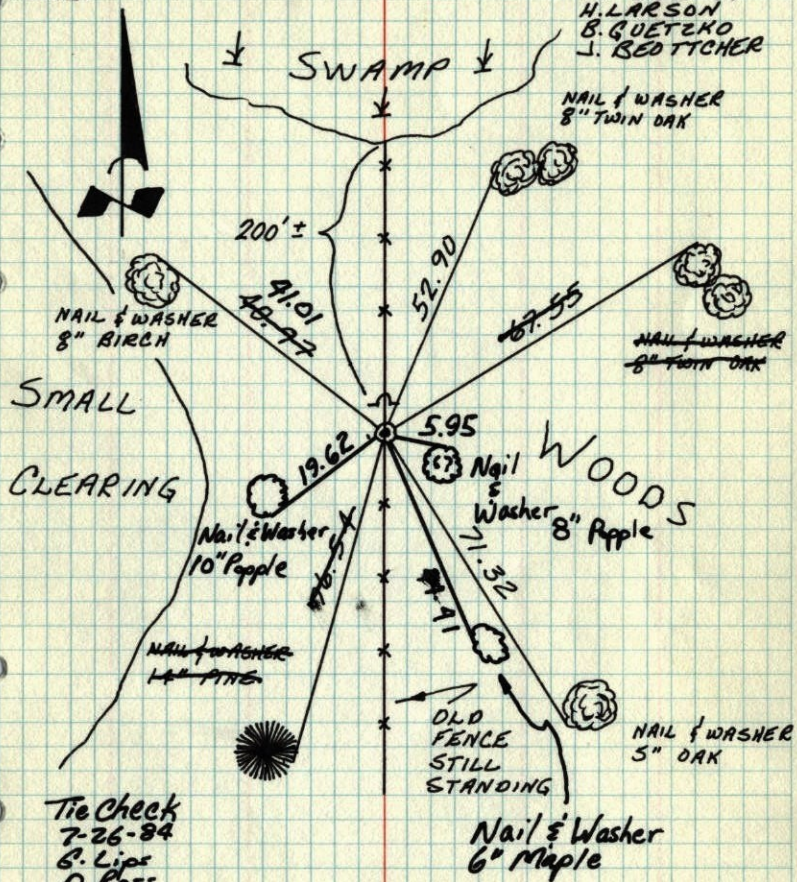 H. LARSON
B. GUETZKO
J. BEOTTCHER
SWAMP
NAIL & WASHER
8" TWIN OAK
200'±
52.90
41.01
40.97
67.55
NAIL & WASHER
8" BIRCH
NAIL & WASHER
8" TWIN OAK
SMALL
CLEARING
5.95
19.62
WOODS
Nail
&
Washer
8" Popple
Nail & Washer
10" Popple
71.32
.41
NAIL & WASHER
14" PINE
OLD
FENCE
STILL
STANDING
NAIL & WASHER
5" OAK
Nail & Washer
6" Maple
Tie Check
7-26-84
G. Lips